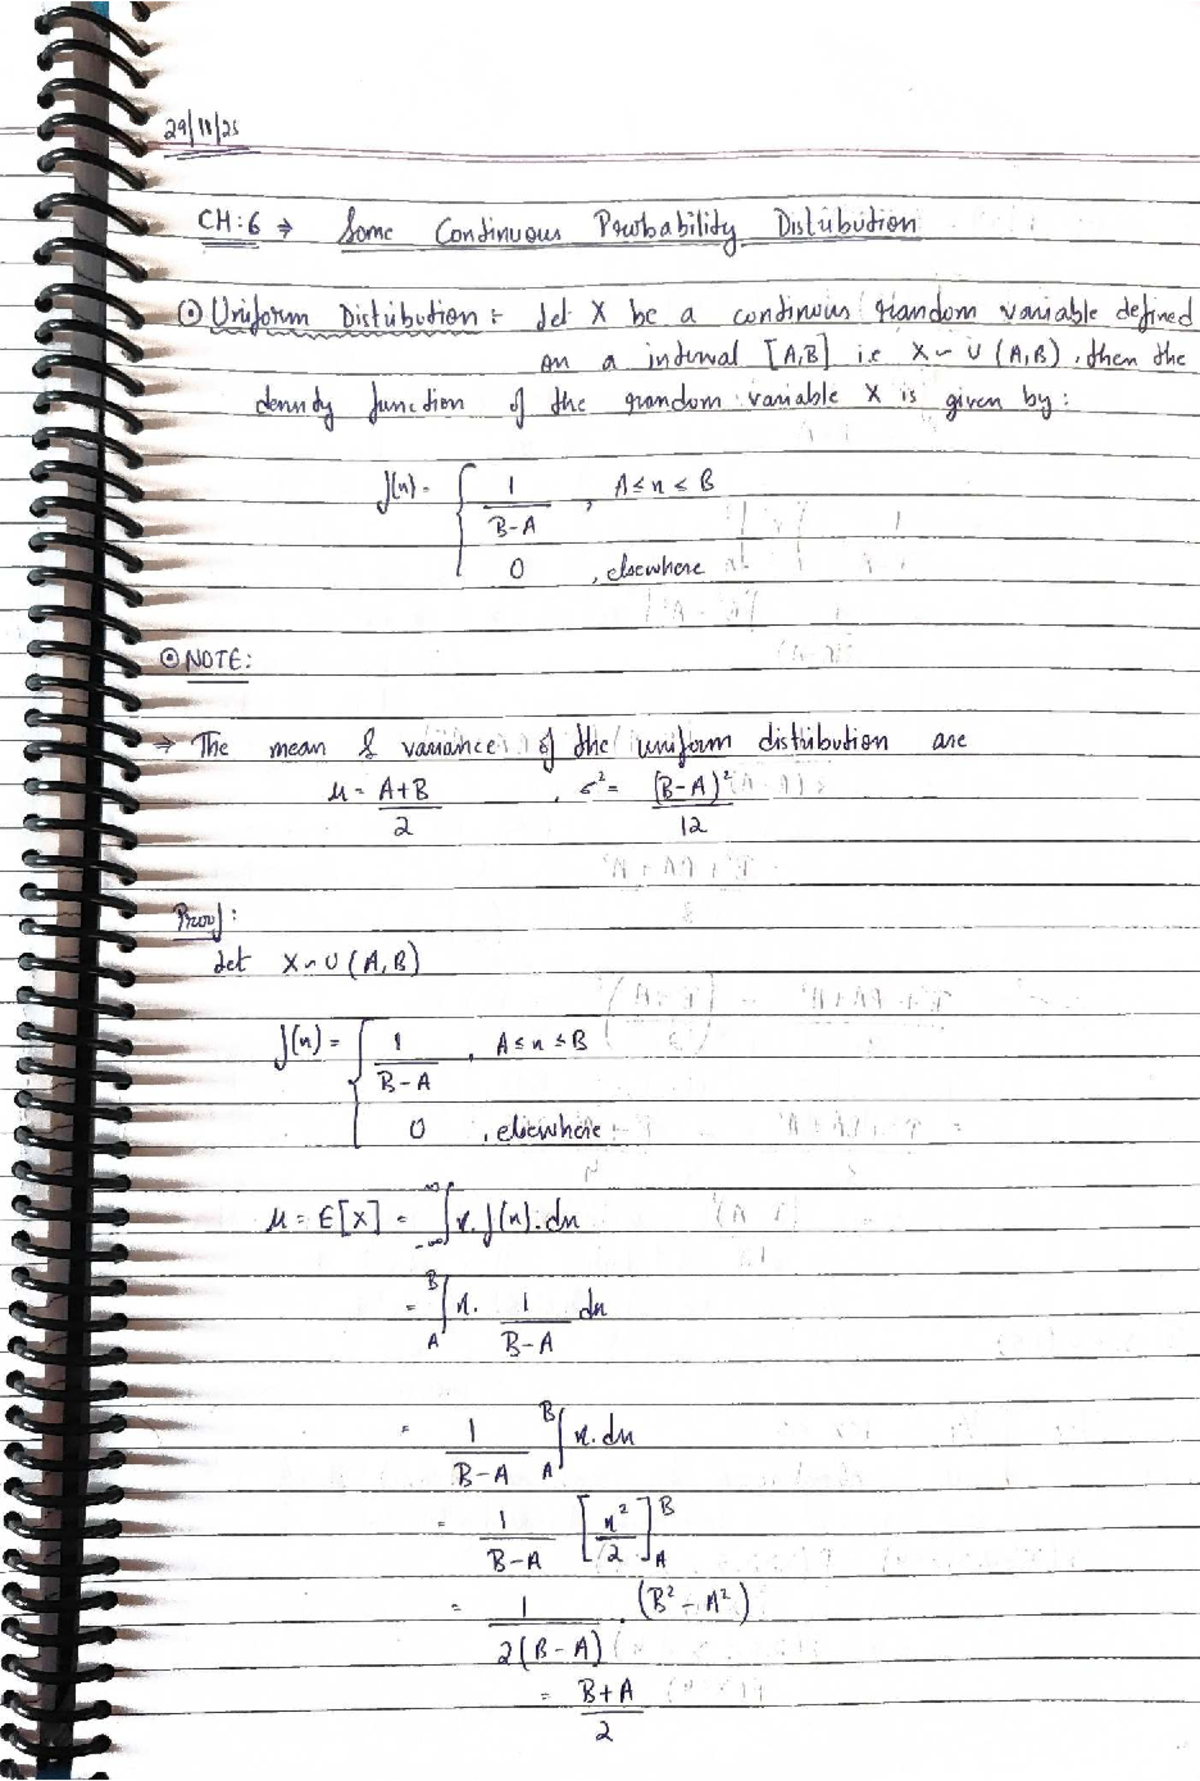 29/11/25
CH:6 ⇒ Some Continuous Probability Distribution
⊙ Uniform Distribution :- Let X be a continous random variable defined
on a interval [A,B] i.e X ~ U (A,B), then the
density function of the random variable X is given by:
f(x) = { 1/(B-A) , A ≤ x ≤ B
0 , elsewhere
⊙ NOTE:
⇒ The mean & variance of the uniform distribution are
μ = (A+B)/2 , σ² = (B-A)²/12
Proof:
Let X ~ U (A,B)
f(x) = { 1/(B-A) , A ≤ x ≤ B
0 , elsewhere
μ = E[X] = ∫_{-∞}^{∞} x. f(x). dx
= ∫_A^B x. 1/(B-A) dx
= 1/(B-A) ∫_A^B x. dx
= 1/(B-A) [x²/2]_A^B
= 1/(2(B-A)) . (B² - A²)
= (B+A)/2